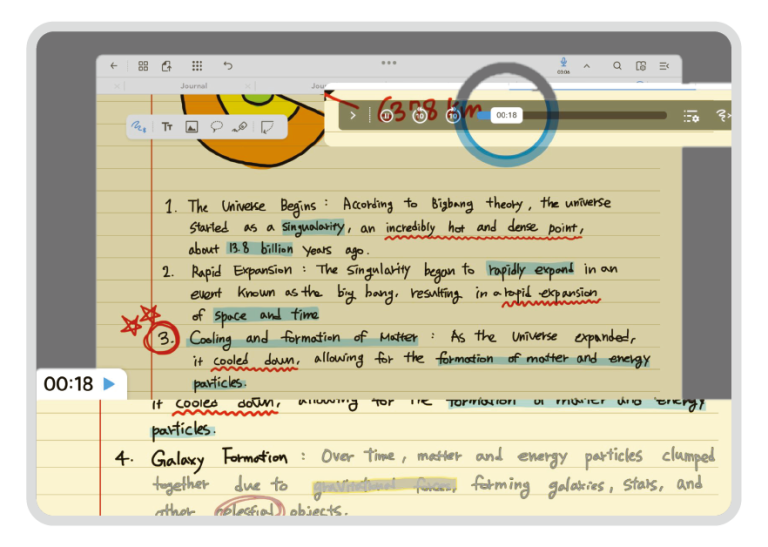 00:06
Journal
Jou
6378 km
Tr
10
10
00:18
1. The Universe Begins : According to Bigbang theory, the universe
started as a singualarity, an incredibly hot and dense point,
about 13.8 billion years ago.
2. Rapid Expansion : The singularity began to rapidly expand in an
event known as the big bang, resulting in a rapid expansion
of space and time
3. Cooling and formation of Matter : As the Universe expanded,
it cooled down, allowing for the formation of matter and energy
particles.
00:18
it cooled down, allowing for the formation of matter and energy
particles.
4. Galaxy Formation : Over Time, matter and energy particles clumped
together due to gravitational forces, forming galaxies, stars, and
other celestial objects.